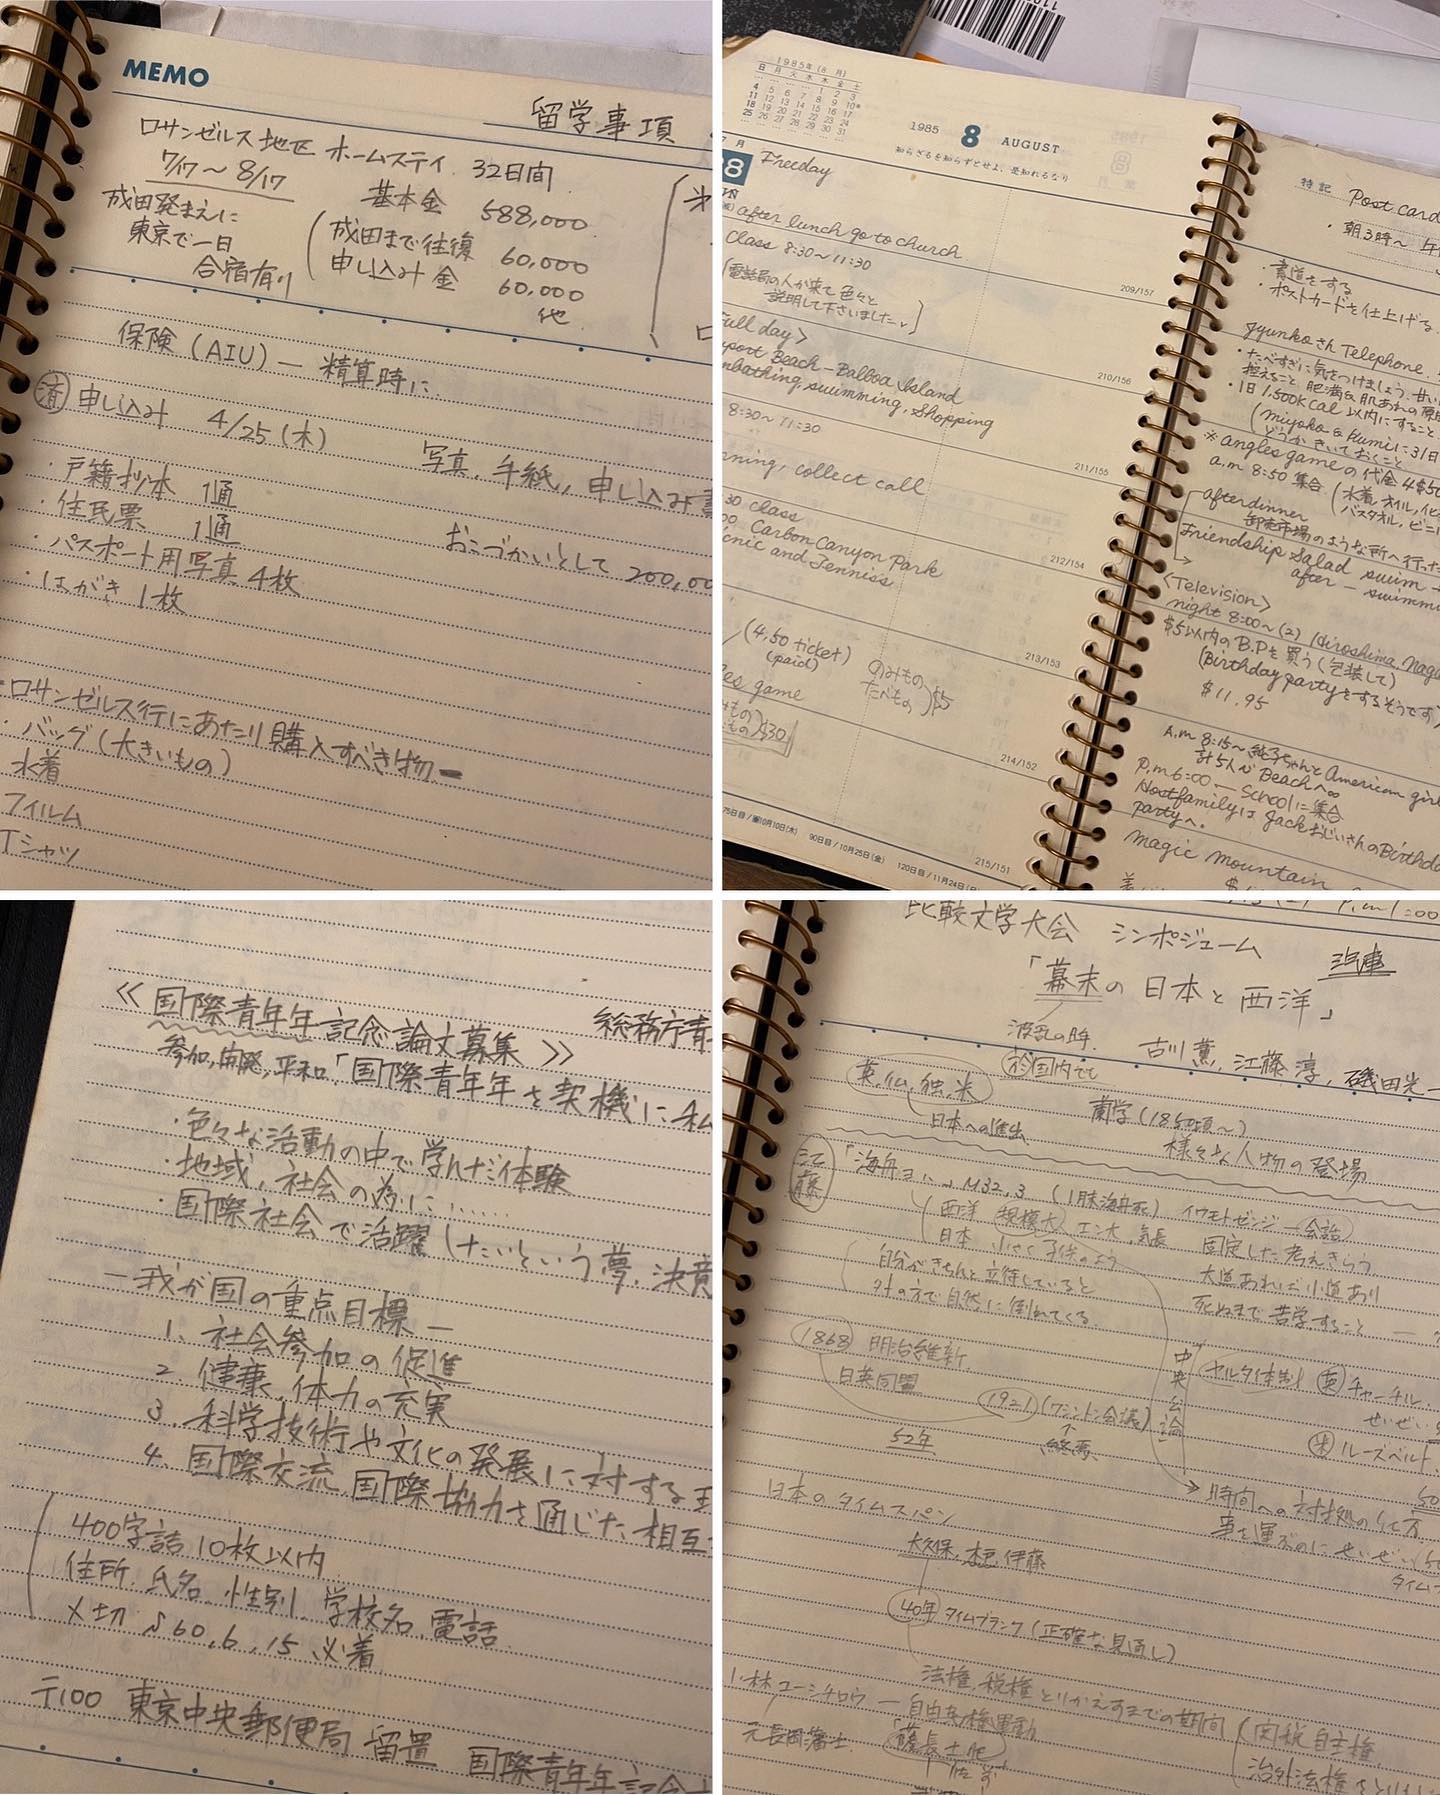 MEMO
留学事項
ロサンゼルス地区 ホームステイ 32日間
7/17～8/17
基本金 588,000
成田発まえに
東京で一日
合宿有り
成田まで往復 60,000
申し込み金 60,000
他
保険(AIU)― 精算時に
済 申し込み 4/25(木)
写真、手紙、申し込み書
・戸籍抄本 1通
・住民票 1通
・パスポート用写真 4枚
・はがき 1枚
おこづかいとして 200,00
ロサンゼルス行にあたり購入すべき物ー
・バッグ(大きいもの)
水着
フィルム
Tシャツ
1985年(8月)
日 月 火 水 木 金 土
1 2 3
4 5 6 7 8 9 10
11 12 13 14 15 16 17
18 19 20 21 22 23 24
25 26 27 28 29 30 31
1985 8 AUGUST
知らざるを知らずとせよ、是知れるなり
7月
8 Freeday
after lunch go to church
209/157
Class 8:30～11:30
電話局の人が来て色々と
説明して下さいました。
210/156
Full day>
port Beach-Balboa Island
nbathing, swimming, shopping
211/155
8:30～11:30
ning, collect call
212/154
30 class
00 Carbon Canyon Park
cnic and Tenniss
213/153
(4.50 ticket)
(paid)
のみもの
たべもの
$5
es game
214/152
75日目/10月10日(木) 90日目/10月25日(金) 120日目/11月24日(日)
215/151
特記 Post card
・朝3時～
・書道をする
・ポストカードを仕上げる
Jyunkoさん Telephone
・たべすぎに気をつけましょう。甘い
控えること 肥満&肌あれの原因
・1日1,500Kcal以内にすること
(miyoko & Kumiに31日
どうかきいておくこと
※angles game の代金 4$50
a.m 8:50 集合 (水着,オイル,
バスタオル,ビニ
after dinner
卸売市場のような所へ行った
Friendship Salad swim
after - swimmi
<Television>
night 8:00～(2) Hiroshima Naga
$5以内のB.Pを買う(包装して)
(Birthday partyをするそうです)
$11.95
A.m 8:15～ 純子ちゃんとAmerican girl
計5人でBeachへ
P.m 6:00 ― Schoolに集合
HostfamilyはJackおじいさんのBirthda
partyへ。
magic mountain
≪国際青年年記念論文募集≫
総務庁青
参加,開発,平和「国際青年年を契機に私
・色々な活動の中で学んだ体験
・地域、社会の為に……
・国際社会で活躍したいという夢、決意
―我が国の重点目標―
1. 社会参加の促進
2. 健康、体力の充実
3. 科学技術や文化の発展に対する
4. 国際交流、国際協力を通じた相互
400字詰 10枚以内
住所、氏名、性別、学校名、電話
〆切 S60.6.15 必着
〒100 東京中央郵便局 留置 国際青年年記念
比較文学大会 シンポジューム
「幕末の日本と西洋」
波乱の時
古川薫,江藤淳,磯田光一
英,仏,独,米
国内でも
日本への進出
蘭学(1850頃～)
様々な人物の登場
江藤
M32.3
西洋 規模大
日本 小さく子供のよう
会話
固定した考えきらう
自分がきちんと立待していると
外の方で自然に倒れてくる
大道あれば小道あり
死ぬまで苦学すること
1868 明治維新
日英同盟
1921 (ワシントン会議)
終焉
52年
中央公論
ヤルタ体制 英 チャーチル
せいぜい5
米 ルーズベルト
時間への対処の仕方
事を運ぶのにせいぜい
日本のタイムスパン
大久保,木戸,伊藤
40年 タイムブランク(正確な見通し)
法権、税権とりかえすまでの期間
関税自主権
治外法権
小林ユーシチロウ ― 自由民権運動
元長岡藩士
「薩長土肥」